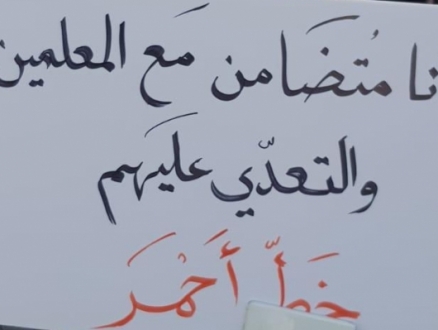 نا مُتضَامن مَع المعلمين
والتعدّي عليهم
خَطّ أَحْمَر